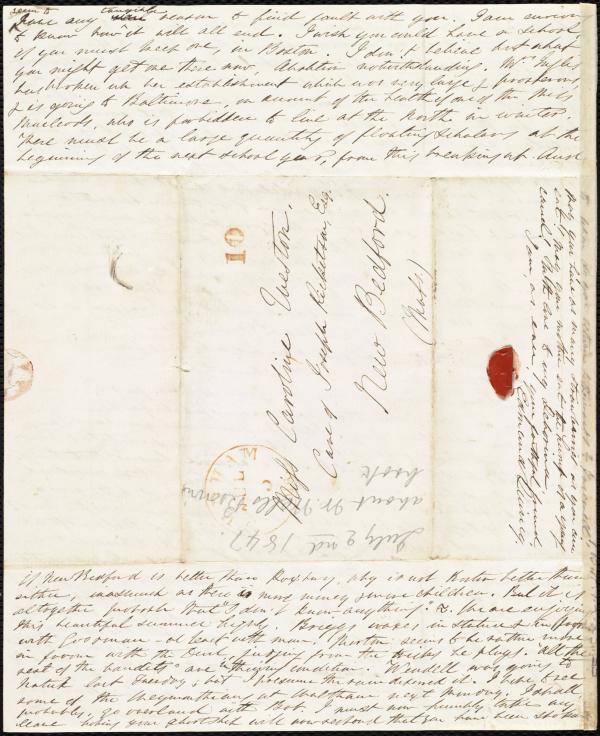 seem to complete
have any reason to find fault with you. I am curious
to know how it will all end. I wish you would have a School,
if you must keep one, in Boston. I don't believe but what
you might get one there now, Abolition notwithstanding. Mrs Inglis
has broken up her establishment which was very large & prosperous
& is going to Baltimore, on account of the health of one of the Miss
Macleods, who is forbidden to live at the North in winter.
There must be a large quantity of floating scholars at the
beginning of the next school year, from this breaking up. And
10
Miss Caroline Weston,
Care of Joseph Ricketson, Esq.
New Bedford.
(Mass.)
July 2nd 1847.
about W. Wells Brown's
book
may you have as many strawberries as you can
eat & may your mother eat the
cand. With love to my Deborah
I am as ever your faithful friend
Edmund Quincy.
if New Bedford is better than Roxbury, why is not Boston better than
either, inasmuch as there is more money & more children. But it is
altogether probable that "I don't know anything" &c. We are enjoying
this beautiful summer highly. Briggs waxes in stature & in favor
with Goodman at least with man. Morton seems to be rather more
in favour with the Devil, judging from the tricks he plays. "All the
rest of the bandits" are in thriving condition. Wendell was going to
Natick last Tuesday, but I presume the rain deferred it. I hope to see
some of the Weymouthians at Waltham next Monday. I shall
probably go overland with Bob. I must now humbly take my
leave hoping your ghostship will now respond that you have been spoken